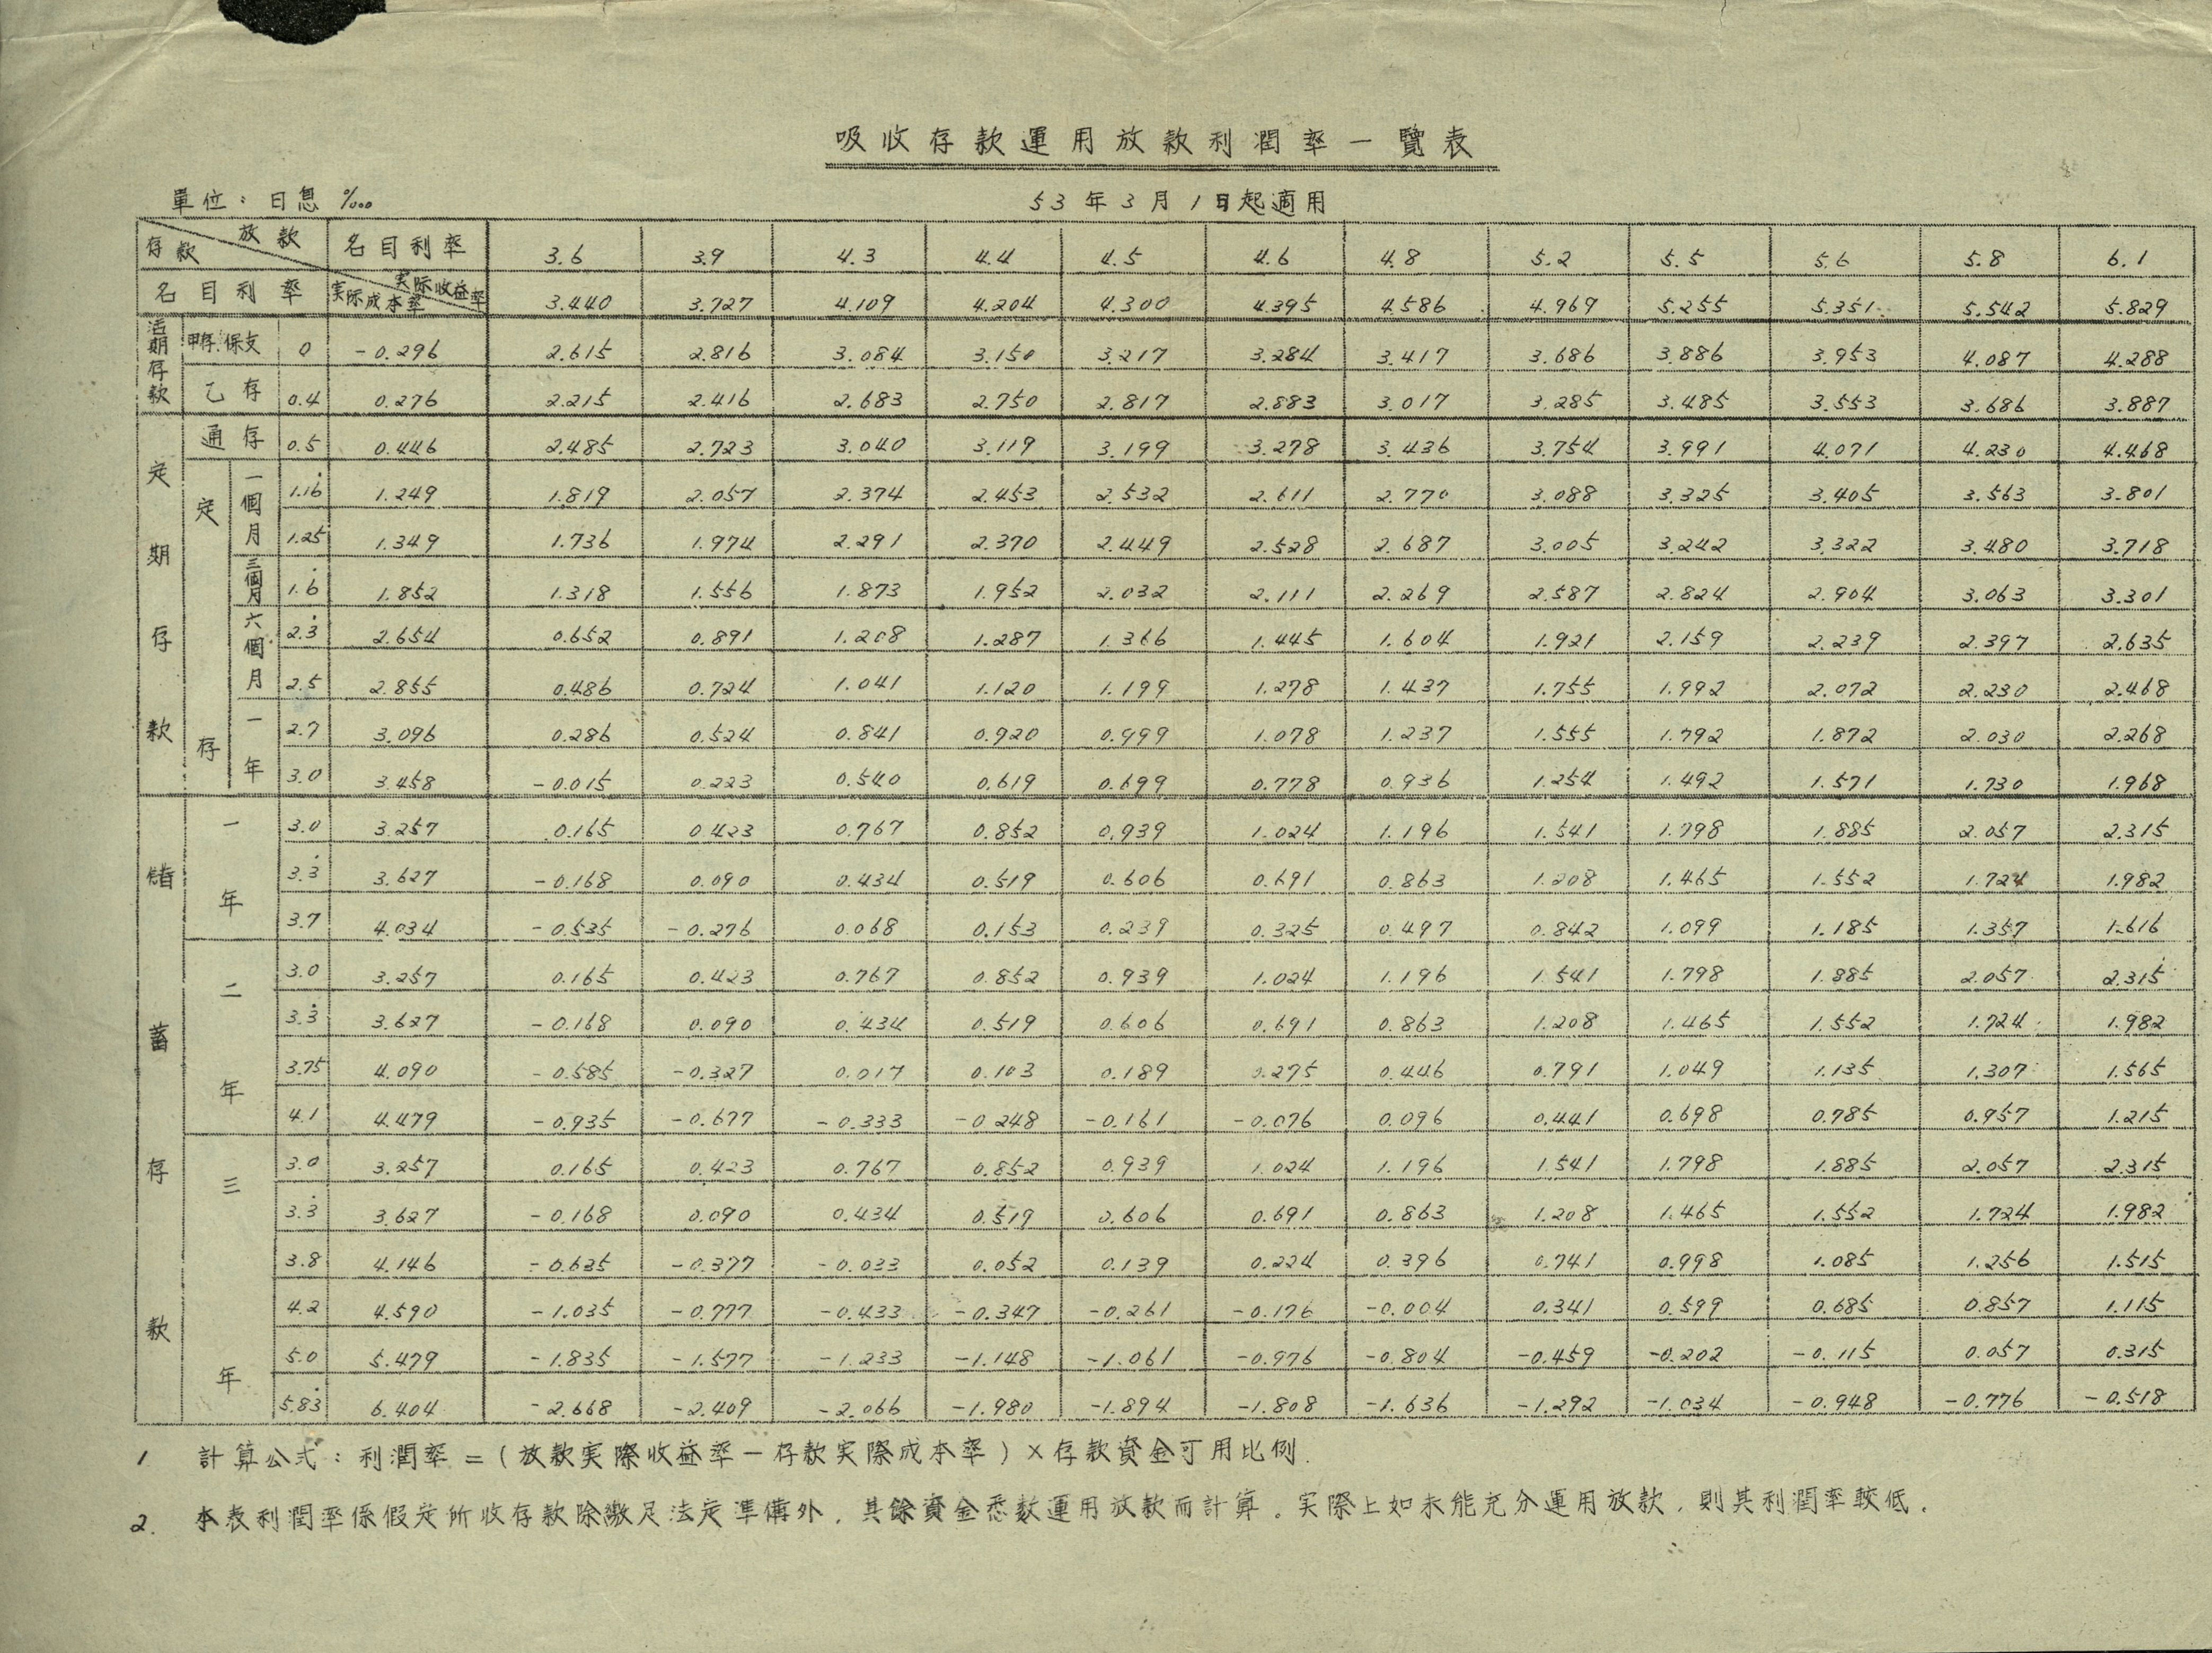 吸收存款運用放款利潤率一覽表
單位：日息 ‱
53年3月1日起適用
存款 放款 名目利率 3.6 3.9 4.3 4.4 4.5 4.6 4.8 5.2 5.5 5.6 5.8 6.1
名目利率 实际成本率 实际收益率 3.440 3.727 4.109 4.204 4.300 4.395 4.586 4.969 5.255 5.351 5.542 5.829
活期存款 甲存.保支 0 -0.296 2.615 2.816 3.084 3.150 3.217 3.284 3.417 3.686 3.886 3.953 4.087 4.288
乙存 0.4 0.276 2.215 2.416 2.683 2.750 2.817 2.883 3.017 3.285 3.485 3.553 3.686 3.887
定期存款 通存 0.5 0.446 2.485 2.723 3.040 3.119 3.199 3.278 3.436 3.754 3.991 4.071 4.230 4.468
定存 一個月 1.16̇ 1.249 1.819 2.057 2.374 2.453 2.532 2.611 2.770 3.088 3.325 3.405 3.563 3.801
1.25 1.349 1.736 1.974 2.291 2.370 2.449 2.528 2.687 3.005 3.242 3.322 3.480 3.718
三個月 1.6̇ 1.852 1.318 1.556 1.873 1.952 2.032 2.111 2.269 2.587 2.824 2.904 3.063 3.301
六個月 2.3̇ 2.654 0.652 0.891 1.208 1.287 1.366 1.445 1.604 1.921 2.159 2.239 2.397 2.635
2.5 2.855 0.486 0.724 1.041 1.120 1.199 1.278 1.437 1.755 1.992 2.072 2.230 2.468
一年 2.7 3.096 0.286 0.524 0.841 0.920 0.999 1.078 1.237 1.555 1.792 1.872 2.030 2.268
3.0 3.458 -0.015 0.223 0.540 0.619 0.699 0.778 0.936 1.254 1.492 1.571 1.730 1.968
儲蓄存款 一年 3.0 3.257 0.165 0.423 0.767 0.852 0.939 1.024 1.196 1.541 1.798 1.885 2.057 2.315
3.3̇ 3.627 -0.168 0.090 0.434 0.519 0.606 0.691 0.863 1.208 1.465 1.552 1.724 1.982
3.7 4.034 -0.535 -0.276 0.068 0.153 0.239 0.325 0.497 0.842 1.099 1.185 1.357 1.616
二年 3.0 3.257 0.165 0.423 0.767 0.852 0.939 1.024 1.196 1.541 1.798 1.885 2.057 2.315
3.3̇ 3.627 -0.168 0.090 0.434 0.519 0.606 0.691 0.863 1.208 1.465 1.552 1.724 1.982
3.75 4.090 -0.585 -0.327 0.017 0.103 0.189 0.275 0.446 0.791 1.049 1.135 1.307 1.565
4.1 4.479 -0.935 -0.677 -0.333 -0.248 -0.161 -0.076 0.096 0.441 0.698 0.785 0.957 1.215
三年 3.0 3.257 0.165 0.423 0.767 0.852 0.939 1.024 1.196 1.541 1.798 1.885 2.057 2.315
3.3̇ 3.627 -0.168 0.090 0.434 0.519 0.606 0.691 0.863 1.208 1.465 1.552 1.724 1.982
3.8 4.146 -0.635 -0.377 -0.033 0.052 0.139 0.224 0.396 0.741 0.998 1.085 1.256 1.515
4.2 4.590 -1.035 -0.777 -0.433 -0.347 -0.261 -0.176 -0.004 0.341 0.599 0.685 0.857 1.115
5.0 5.479 -1.835 -1.577 -1.233 -1.148 -1.061 -0.976 -0.804 -0.459 -0.202 -0.115 0.057 0.315
5.83̇ 6.404 -2.668 -2.409 -2.066 -1.980 -1.894 -1.808 -1.636 -1.292 -1.034 -0.948 -0.776 -0.518
1 計算公式：利潤率＝（放款实際收益率－存款实際成本率）×存款資金可用比例.
2. 本表利潤率係假定所收存款除繳足法定準備外，其餘資金悉數運用放款而計算。实際上如未能充分運用放款，則其利潤率較低.